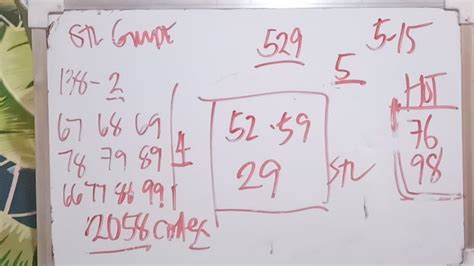 STL Guide
529
5-15
5
138-2
67 68 69
78 79 89
66 77 88 99
4
52.59
29
STL
HOT
76
98
12058 codex